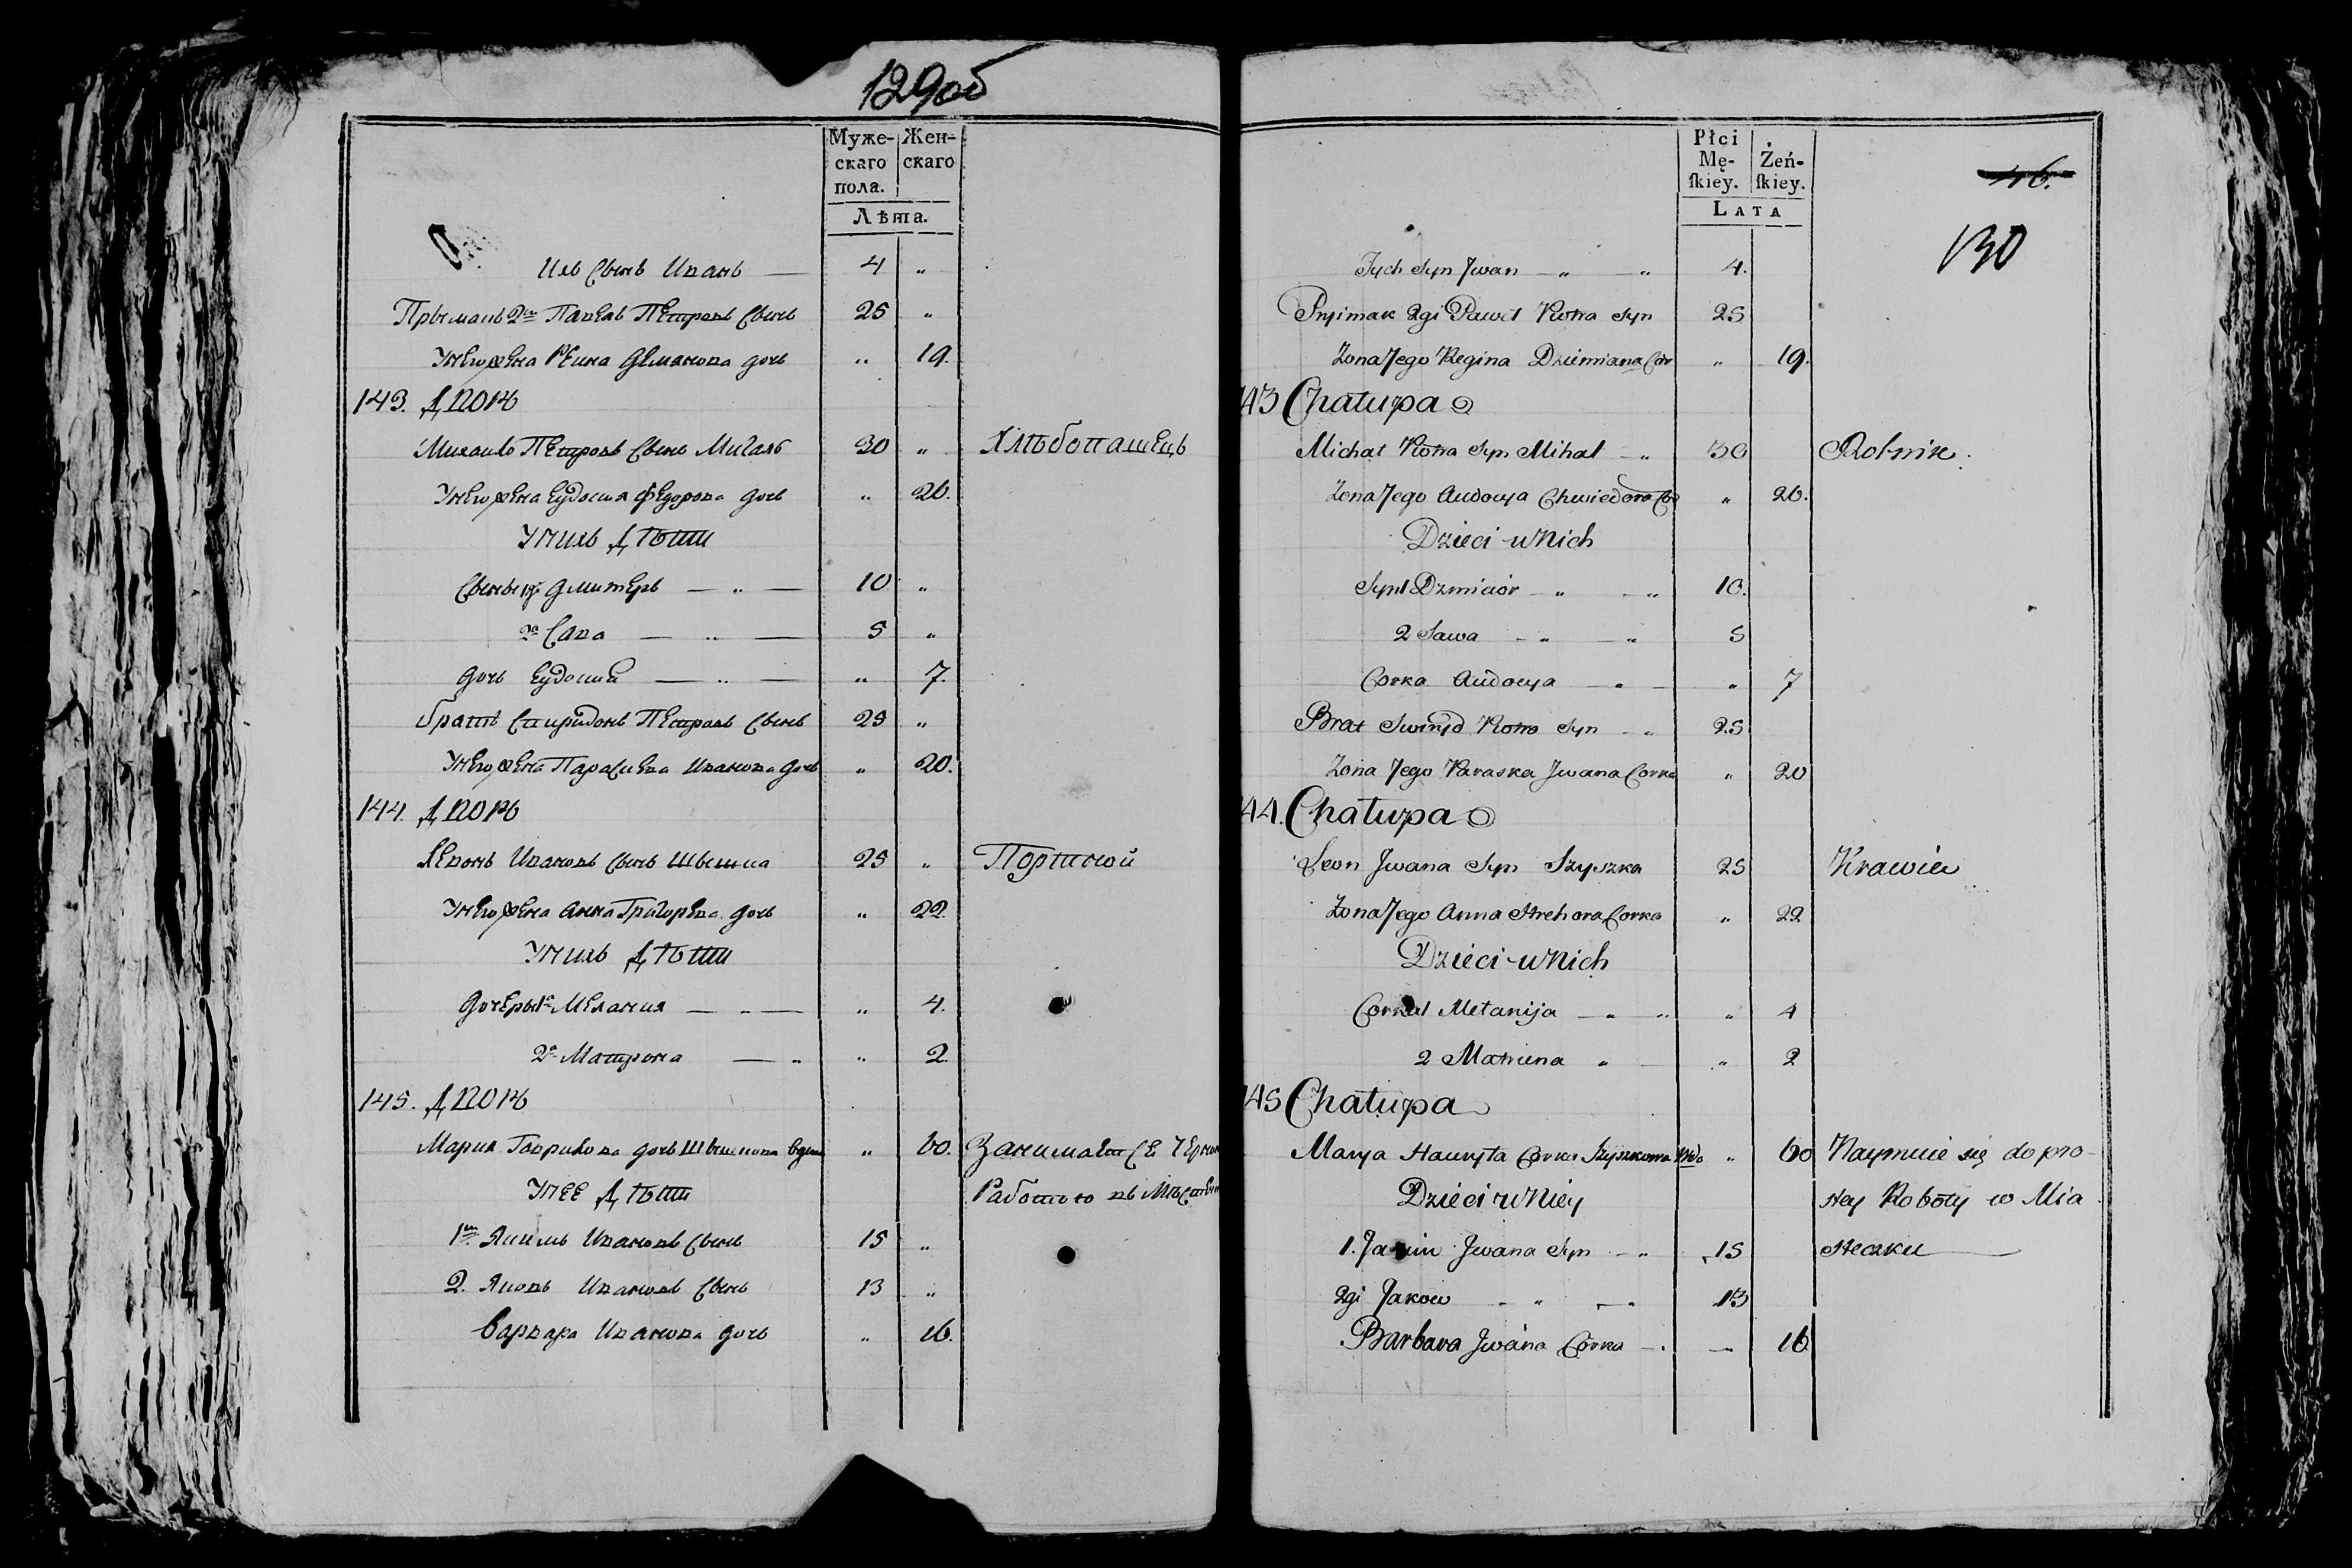 129об
Муже- Жен-
скаго скаго
пола.
Лѣта.
Ихъ Сынъ Иванъ — 4 „
Прыманъ 2й Павелъ Петровъ Сынъ 25 „
У него жена Реина Демянова дочь „ 19.
143. Дворъ
Михаило Петровъ Сынъ Мигаль 30 „ Хлѣбопашецъ
У него жена Еудосия Федорова дочь „ 26.
У нихъ Дѣти
Сыны 1й Дмитеръ — „ — 10 „
2й Сава — „ — 5 „
дочь Еудосия — „ — „ 7.
братъ Спиридонъ Петровъ Сынъ 25 „
У него жена Парасиева Иванова дочь „ 20.
144. Дворъ
Левонъ Ивановъ Сынъ Шышка 25 „ Портной
У него жена Анна Григорева дочь „ 22.
У нихъ Дѣти
дочеры 1я Мелания — „ — „ 4.
2я Матрона — „ „ 2
145. Дворъ
Мария Гаврилова дочь Шышкова вдова „ 60. Занимается Черною
У нее Дѣти Работою въ Мѣстечке
1й Якимъ Ивановъ Сынъ 15 „
2. Яковъ Ивановъ Сынъ 13 „
Варвара Иванова дочь „ 16.
Płci
Mę- Żeń-
skiey. skiey.
LATA
46.
130
Jych Syn Jwan — „ — „ 4.
Pryimak 2gi Paweł Piotra Syn 25
Zona Jego Regina Dziemiana Cór „ 19.
143 Chałupa
Michał Piotra Syn Mihal — „ 30 Rolnik.
Zona Jego Audocya Chwiedora Có „ 26.
Dzieci u Nich
Syn 1 Dzmiciór — „ — „ 10.
2 Sawa — „ — „ 5
Corka Audocya — „ — „ 7
Brat Swiryd Piotra Syn — „ 25
Zona Jego Paraska Jwana Corka „ 20
144. Chałupa
Lewon Jwana Syn Szyszka 25 Krawiec
Zona Jego Anna Hrehora Corka „ 22
Dzieci u Nich
Corka 1 Mełanija — „ „ „ 4
2 Matruna „ — „ 2
145 Chałupa
Marya Hauryła Corka Szyszkowa Wdo „ 60 Naymuie się do pro-
Dzieci u Niey stey Roboty w Mia
1. Jakim Jwana Syn — „ 15 steczku —
2gi Jakow — „ — „ 13
Barbara Jwana Córka — . — 16